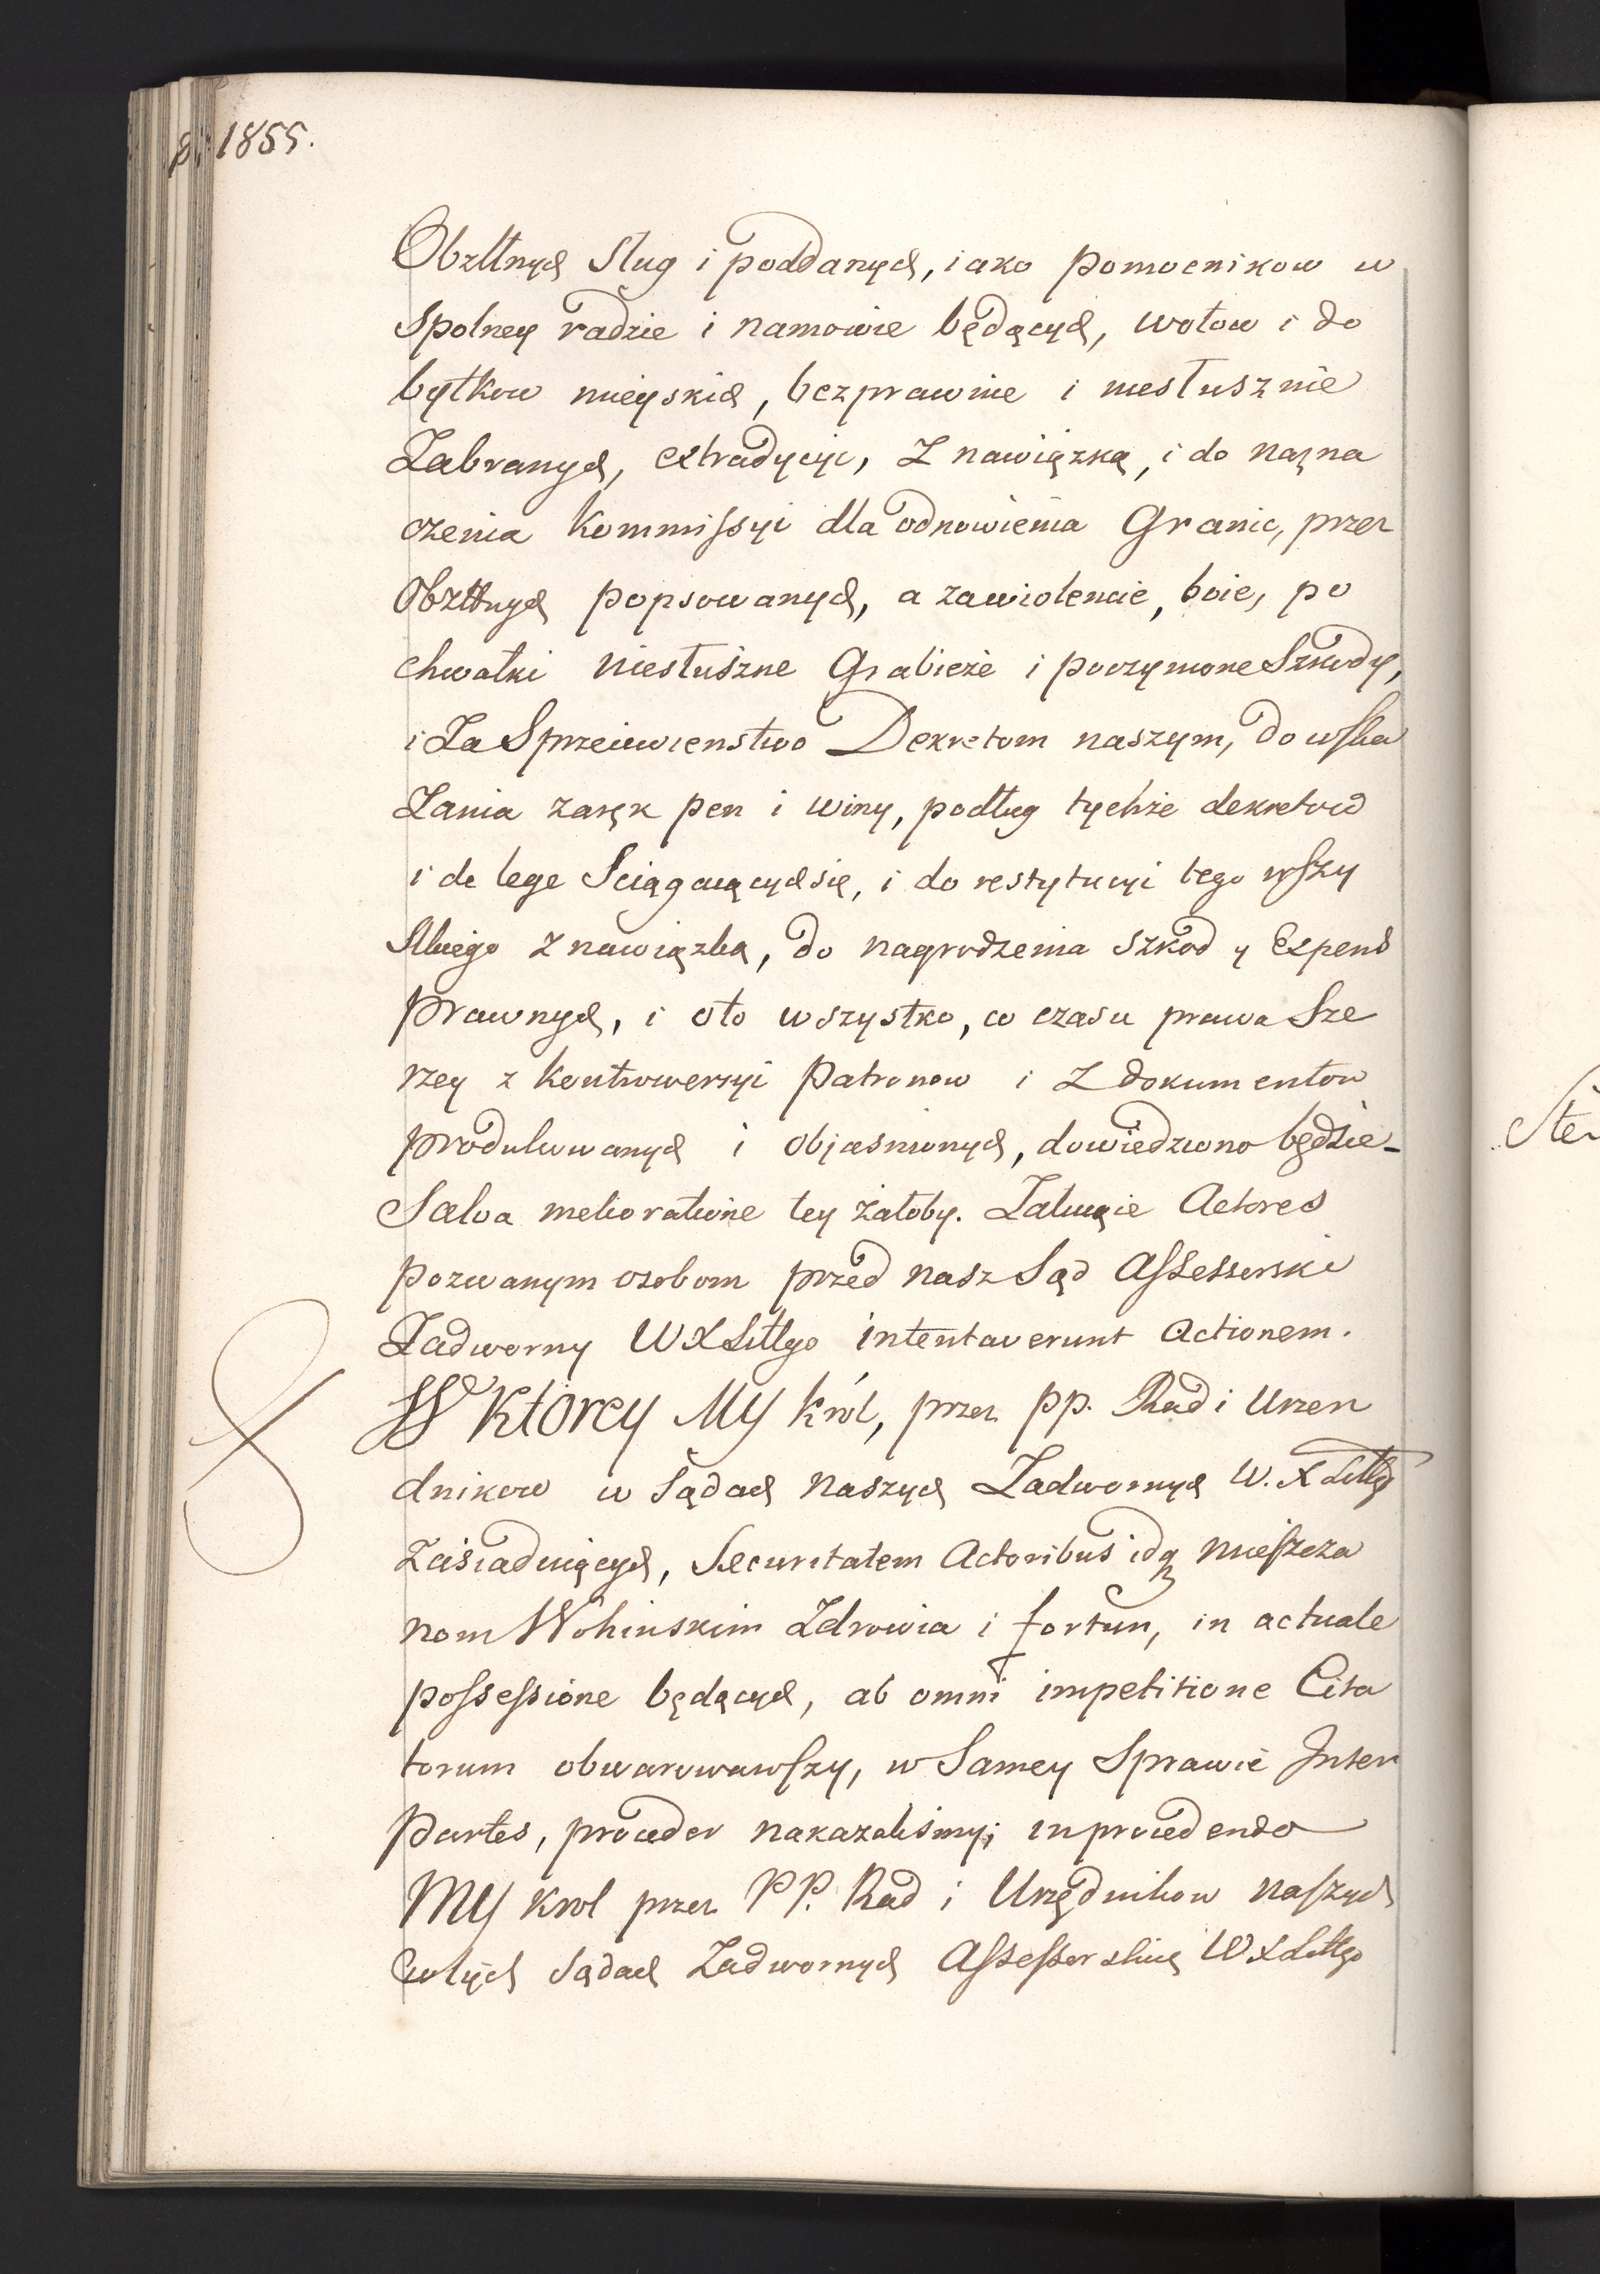 p. 1855.
Obzłłnych Sług i poddanych, iako pomocnikow w
Spolney radzie i namowie będących, wołow i do
bytkow mieyskich, bezprawnie i niesłusznie
Zabranych, extradycyi, Z nawiązką, i do nazna
czenia Kommissyi dla odnowienia Granic, przez
Obzłłnych popsowanych, a zawiolencie, boie, po
chwałki niesłuszne Grabieże i poczynione Szkody,
i Za Sprzeciwienstwo Dekretom naszym, do wska
Zania zaręk pen i winy, podług tychże dekretow
i de lege Sciągaiących się, i do restytucyi tego wszy
stkiego Z nawiązką, do nagrodzenia Szkod y Expens
Prawnych, i oto wszystko, co czasu prawa Sze
rzey z kontrowersyi Patronow i Z dokumentow
produkowanych i objasnionych, dowiedziono będzie_
Salva melioratione tey żałoby. Załuiącie Actores
pozwanym osobom przed nasz Sąd Assessorski
Zadworny WXLittgo intentaverunt Actionem.
W Ktorey My Król, przez pp. Rad i Urzen
dnikow w Sądach Naszych Zadwornych W.XLittgo
Zasiadaiących, Securitatem Actoribus idq Mieszcza
nom Wohinskim Zdrowia i fortun, in actuale
possessione będących, ab omni impetitione Cita
torum obwarowawszy, w Samey Sprawie Inter
Partes, proceder nakazalismy; in procedendo
My Krol przez PP. Rad i Urzędnikow naszych
w tych Sądach Zadwornych Assessorskich WXLittgo
Ste